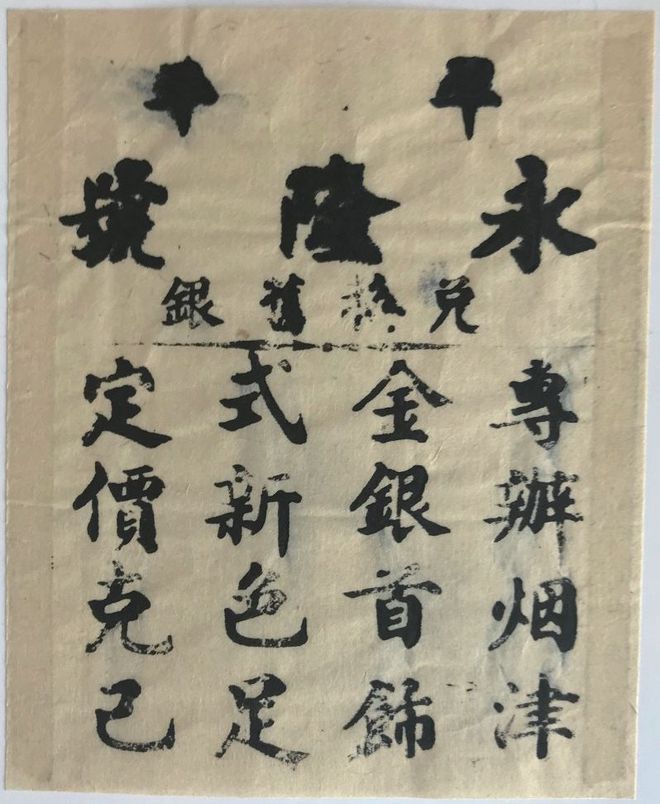 永隆號
兑換舊銀
專辦烟津
金銀首飾
式新色足
定價克己